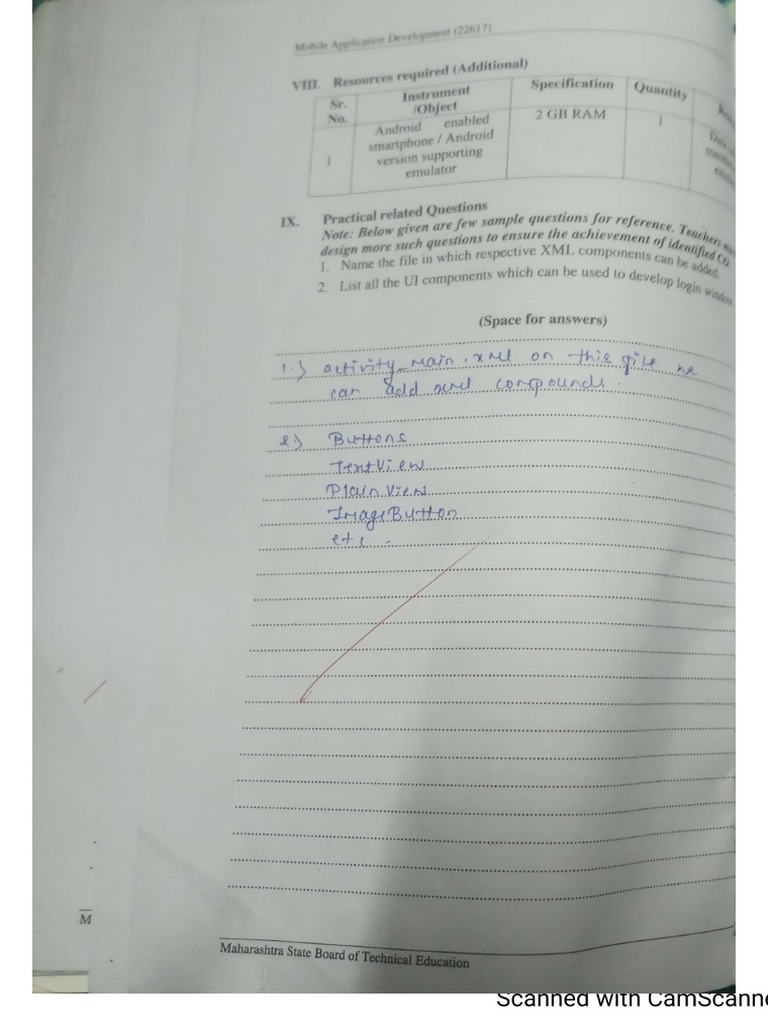 Mobile Application Development (22617)
VIII. Resources required (Additional)
Sr. No. Instrument /Object Specification Quantity
1 Android enabled smartphone / Android version supporting emulator 2 GB RAM 1
IX. Practical related Questions
Note: Below given are few sample questions for reference. Teachers
design more such questions to ensure the achievement of identified CO.
1. Name the file in which respective XML components can be added.
2. List all the UI components which can be used to develop login window
(Space for answers)
1.) activity_main.xml on this file we
can add xml compounds.
2) Buttons
TextView
Plain View
ImageButton
etc
M
Maharashtra State Board of Technical Education
Scanned with CamScanne